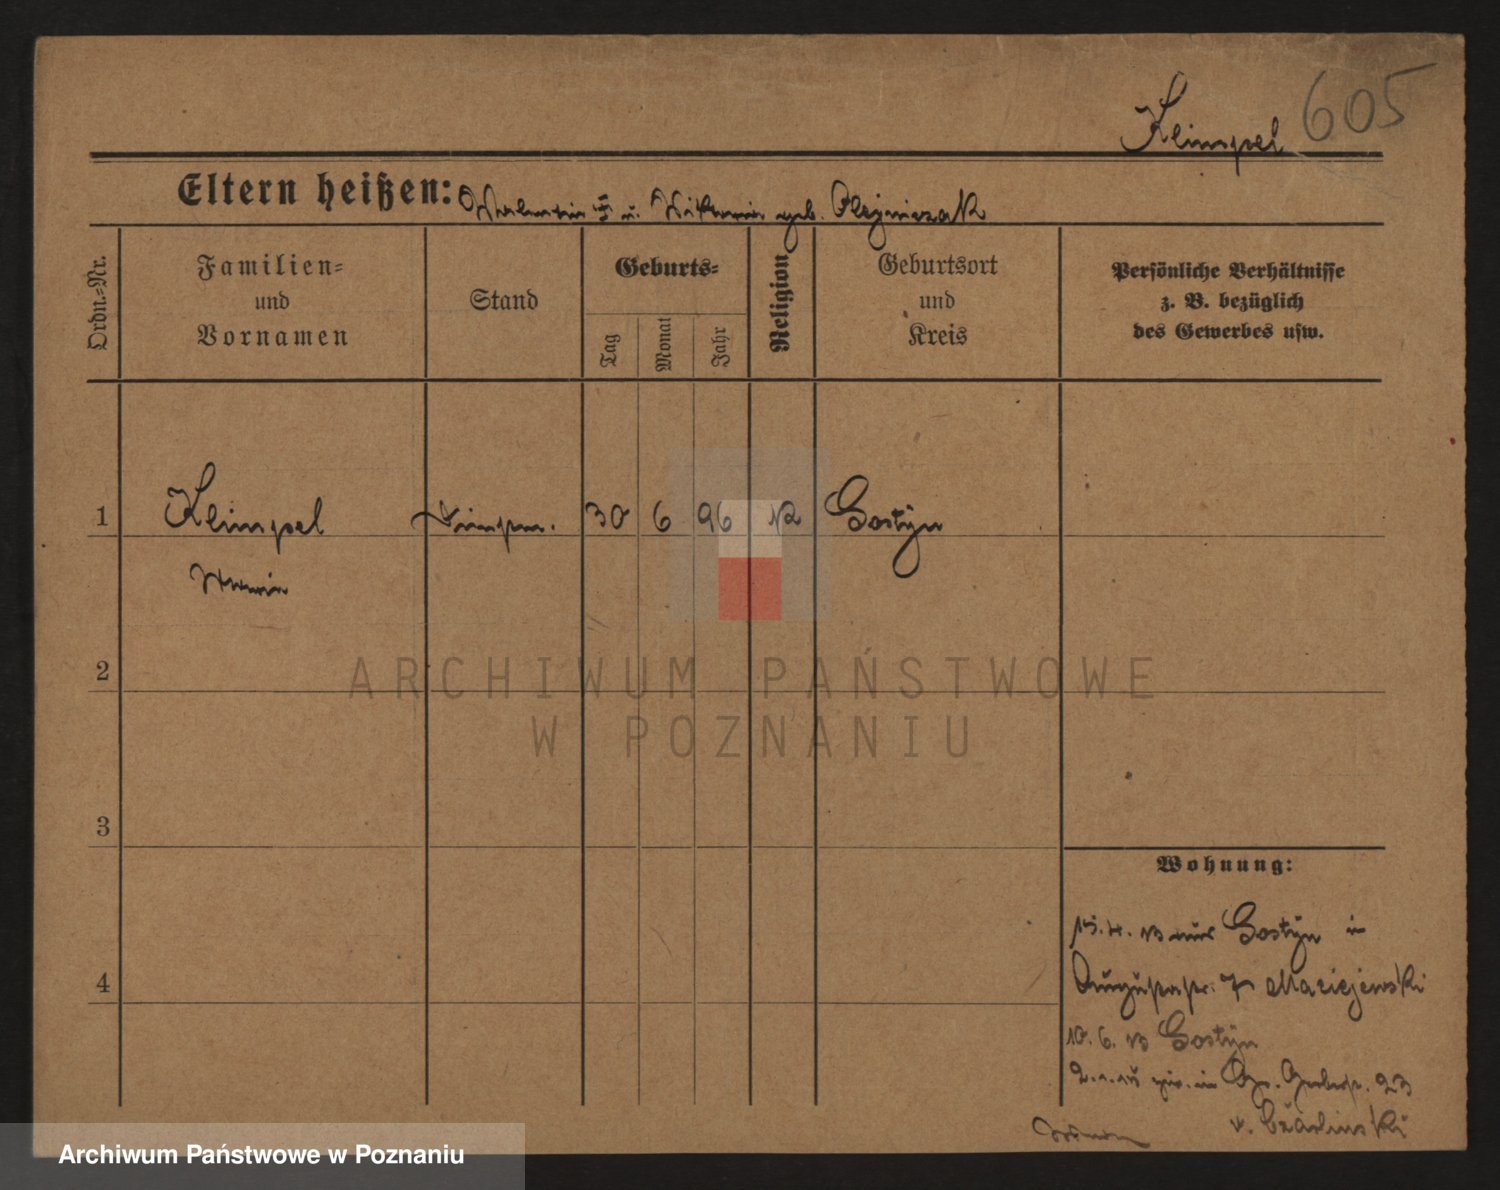 Klimpel 605
Eltern heißen: Valentin † u. Viktoria geb. Olejniczak
Ordn.-Nr.
Familien-
und
Vornamen
Stand
Geburts-
Tag
Monat
Jahr
Religion
Geburtsort
und
Kreis
Persönliche Verhältnisse
z. B. bezüglich
des Gewerbes usw.
1 Klimpel 30 6 96 K Gostÿn
2
3
4
Wohnung:
15.4.13 aus Gostÿn in
Augustastr. 7 Maciejewski
10.6.13 Gostÿn
in Gr. 23
v. Czarlinski
ARCHIWUM PAŃSTWOWE
W POZNANIU
Archiwum Państwowe w Poznaniu